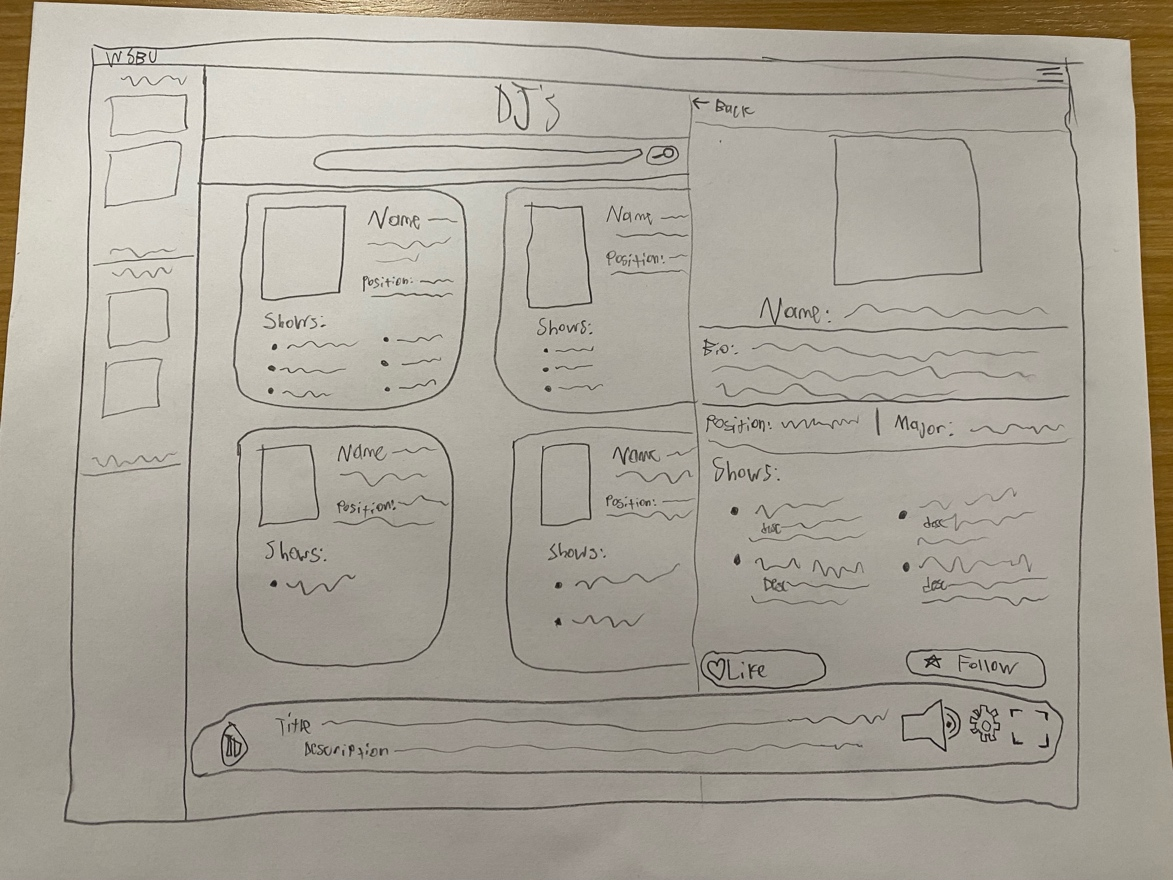 WSBU
DJ's
← Back
Name
Position:
Shows:
Name
Position:
Shows:
Name
Position:
Shows:
Name
Position:
Shows:
Name:
Bio:
Position: | Major:
Shows:
desc
desc
Desc
desc
Like
Follow
Title
Description